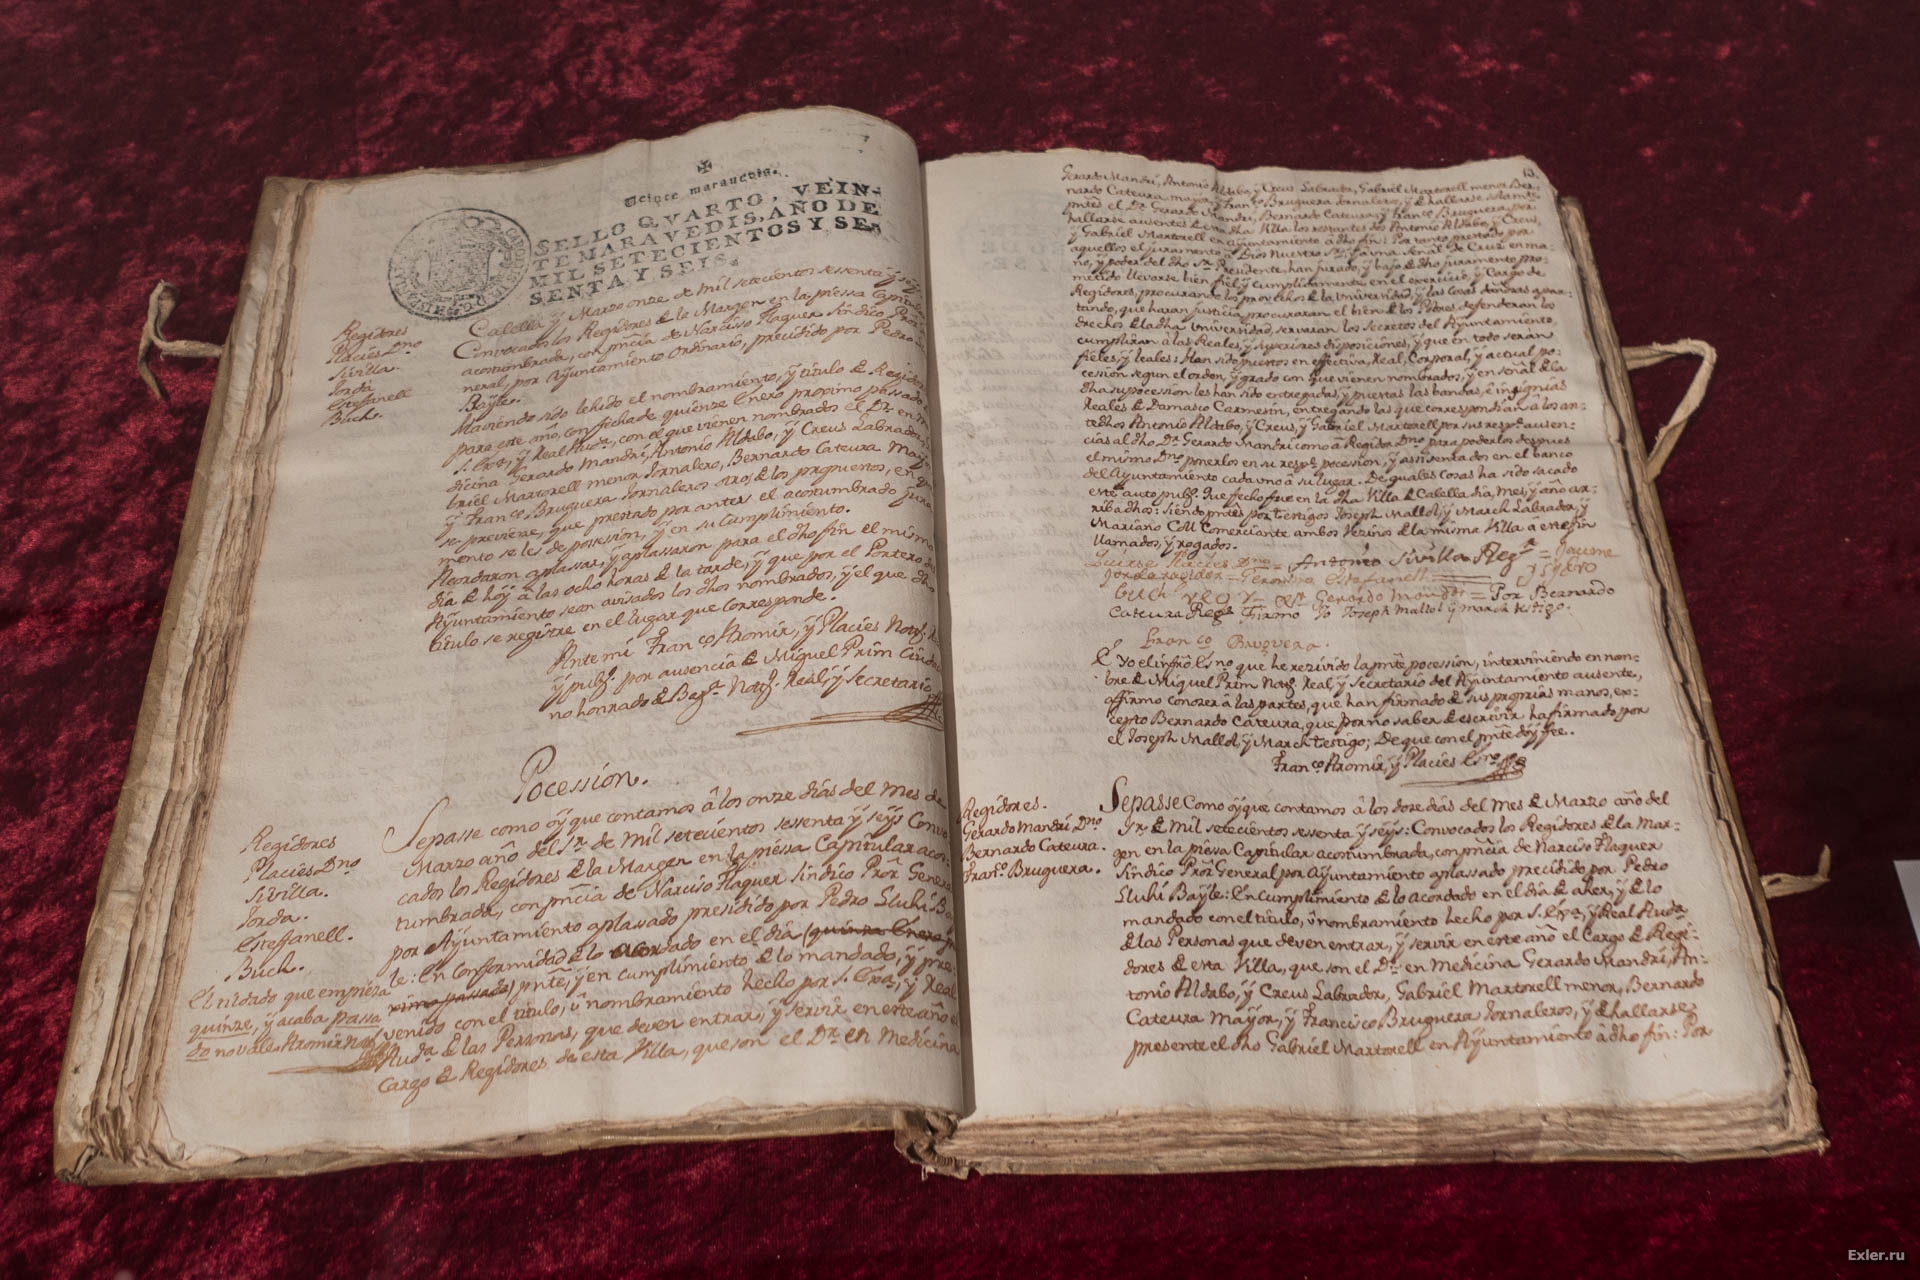 Veinte marauedis.
SELLO QVARTO, VEIN-
TE MARAVEDIS, AÑO DE
MIL SETECIENTOS Y SE-
SENTA Y SEIS.
Regidores
Placies Dno
Sivilla.
Jordà
Estefanell
Buch.
Calella ÿ Marzo onze de Mil setecientos sessenta ÿ seÿs
Convocados los Regidores de la Margen en la piessa Capitular
acostumbrada, con pncia de Narciso Flaquer Sindico Pror
neral, por Aÿuntamiento Ordinario, precidido por Pedro
Baÿle.
Haviendo sido lehido el nombramiento, ÿ titulo de Regidores
para este año, con fecha de quienze Enero proximo passado
ÿ Real Auda, con el que vienen nombrados el Dr. en Me
dicina Gerardo Mandrí, Antonio Aldabo, ÿ Creus Labrador,
briel Martorell menor Jornalero, Bernardo Cateura Maÿor
ÿ Franco Bruguera Jornaleros otros de los propuestos, en
se previene, que prestado por antes el acostumbrado jura
mento se les de possesion, ÿ en su cumplimento.
Acordaron aplassar, ÿ aplassaron para el dho fin el mismo
dia de hoÿ â las ocho horas de la tarde, ÿ que por el Portero de
Aÿuntamiento sean avisados los dhos nombrados, ÿ el que dho
titulo se registre en el lugar que corresponde.
Ante mi Franco Aromir, ÿ Placies Noto
ÿ pubo. por ausencia de Miguel Prim Ciuda
no honrado de Bara Noto. Real, ÿ secretario
Pocession.
Regidores
Placies Dno
Sivilla.
Jorda.
Esteffanell.
Buch.
Sepasse como oÿ que contamos â los onze dias del Mes de
Marzo año del Sr. de Mil setecientos sessenta ÿ seÿs Convo
cados los Regidores de la Margen en la piessa Capitular acos
tumbrada, con pncia de Narciso Flaquer Sindico Pror General
por Aÿuntamiento aplassado presidido por Pedro Lluhí Baÿ
le: En Conformidad de lo acordado en el dia (quinze Enero pro
ximo passado) pnte, ÿ en cumplimiento de lo mandado, ÿ pre-
venido con el titulo, û nombramiento hecho por S. Exa, ÿ Real
Auda de las Personas, que deven entrar, ÿ servir en este año el
Cargo de Regidores de esta Villa, que son el Dr. en Medicina
El nidado que empieza
quinze, ÿ acaba passa
do no vale Aromir Noto
13
Gerardo Mandrí, Antonio Aldabo, ÿ Creus Labrador, Gabriel Martorell menor Ber-
nardo Cateura maÿor, ÿ Franco Bruguera Jornaleros, ÿ de hallarse solamte
pntes el Dr. Gerardo Mandrí, Bernardo Cateura ÿ Franco Bruguera, por
hallarse ausentes de esta dha Villa los restantes dos Antonio Aldabo, ÿ Creus,
ÿ Gabriel Martorell en Aÿuntamiento â dho fin: Por tanto prestado por
aquellos el juramento â Dios Nuestro Sr. ÿ a una Señal de Cruz en ma-
no, ÿ poder del dho Sr. Presidente, han jurado, ÿ bajo de dho juramento pro-
metido llevarse bien fiel, ÿ cumplidamente en el exercicio, ÿ Cargo de
Regidores, procurando los provechos de la Universidad, ÿ las cosas dañosas apar-
tando, que haran justicia, procuraran el bien de los Pobres, defenderan los
drechos de la dha Universidad, servaran los Secretos del Aÿuntamiento,
cumpliran â las Reales, ÿ superiores disposiciones, ÿ que en todo seran
fieles, ÿ leales: Han sido puestos en effectiva, Real, Corporal, ÿ actual po-
cession segun el orden, ÿ grado con que vienen nombrados, ÿ en señal de la
dha su pocession les han sido entregadas, ÿ puestas las bandas, è insignias
Reales de Damasco Carmesin, entregando las que correspondian â los an-
tedhos Antonio Aldabo, ÿ Creus, ÿ Gabriel Martorell por sus respes ausen-
cias al dho Dr. Gerardo Mandrí como â Regidor Dno para poderlos despues
el mismo Dno ponerlos en su respa pocession, ÿ assisentados en el banco
del Aÿuntamiento cada uno â su lugar. De quales cosas ha sido sacado
este auto pubo. Que fecho fue en la dha Villa de Calella dia, mes, ÿ año ar-
riba dhos: siendo pntes por testigos Joseph Mallol, ÿ March Labrador, ÿ
Mariano Coll Comerciante ambos Vezinos de la misma Villa â este fin
llamados, ÿ rogados.
Placies Dno = Antonio Sivilla Regr = Jaume
Jorda regidor = Geronimo Estefanell = y Ysidro
Buch = Dr. Gerardo Mandri = Por Bernardo
Cateura Regr Firmo Yo Joseph Mallol y march testigo.
Franco Bruguera.
È Yo el infro Esno que he rezivido la pnte pocession, interviniendo en nom-
bre de Miguel Prim Noto. Real, ÿ Secretario del Aÿuntamiento ausente,
affirmo conozer â las partes, que han firmado de sus proprias manos, ex-
cepto Bernardo Cateura, que por no saber de escrivir ha firmado por
el Joseph Mallol ÿ March testigo; De que con el pnte doÿ fee.
Franco Aromir, ÿ Placies Esno
Regidores.
Gerardo Mandrí Dno
Bernardo Cateura.
Franco Bruguera.
Sepasse como oÿ que contamos â los doze dias del Mes de Marzo año del
Sr. de Mil setecientos sessenta ÿ seÿs: Convocados los Regidores de la Mar-
gen en la piessa Capitular acostumbrada, con pncia de Narciso Flaquer
Sindico Pror General por Aÿuntamiento aplassado precidido por Pedro
Lluhí Baÿle: En cumplimiento de lo acordado en el dia de aher, ÿ de lo
mandado con el titulo, û nombramiento hecho por S. Exa, ÿ Real Auda
de las Personas que deven entrar, ÿ servir en este año el Cargo de Regi-
dores de esta Villa, que son el Dr. en Medicina Gerardo Mandrí, An-
tonio Aldabo, ÿ Creus Labrador, Gabriel Martorell menor, Bernardo
Cateura Maÿor, ÿ Francisco Bruguera Jornaleros, ÿ de hallarse
presente el dho Gabriel Martorell en Aÿuntamiento â dho fin: Por
Exler.ru